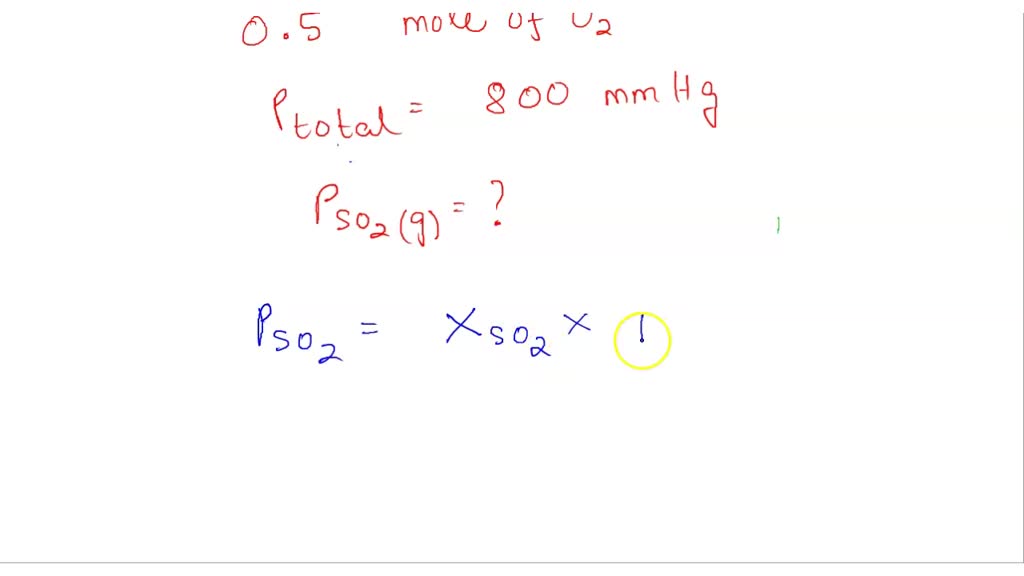 0.5 mole of O2
Ptotal = 800 mmHg
PSO2(g) = ?
PSO2 = XSO2 ×